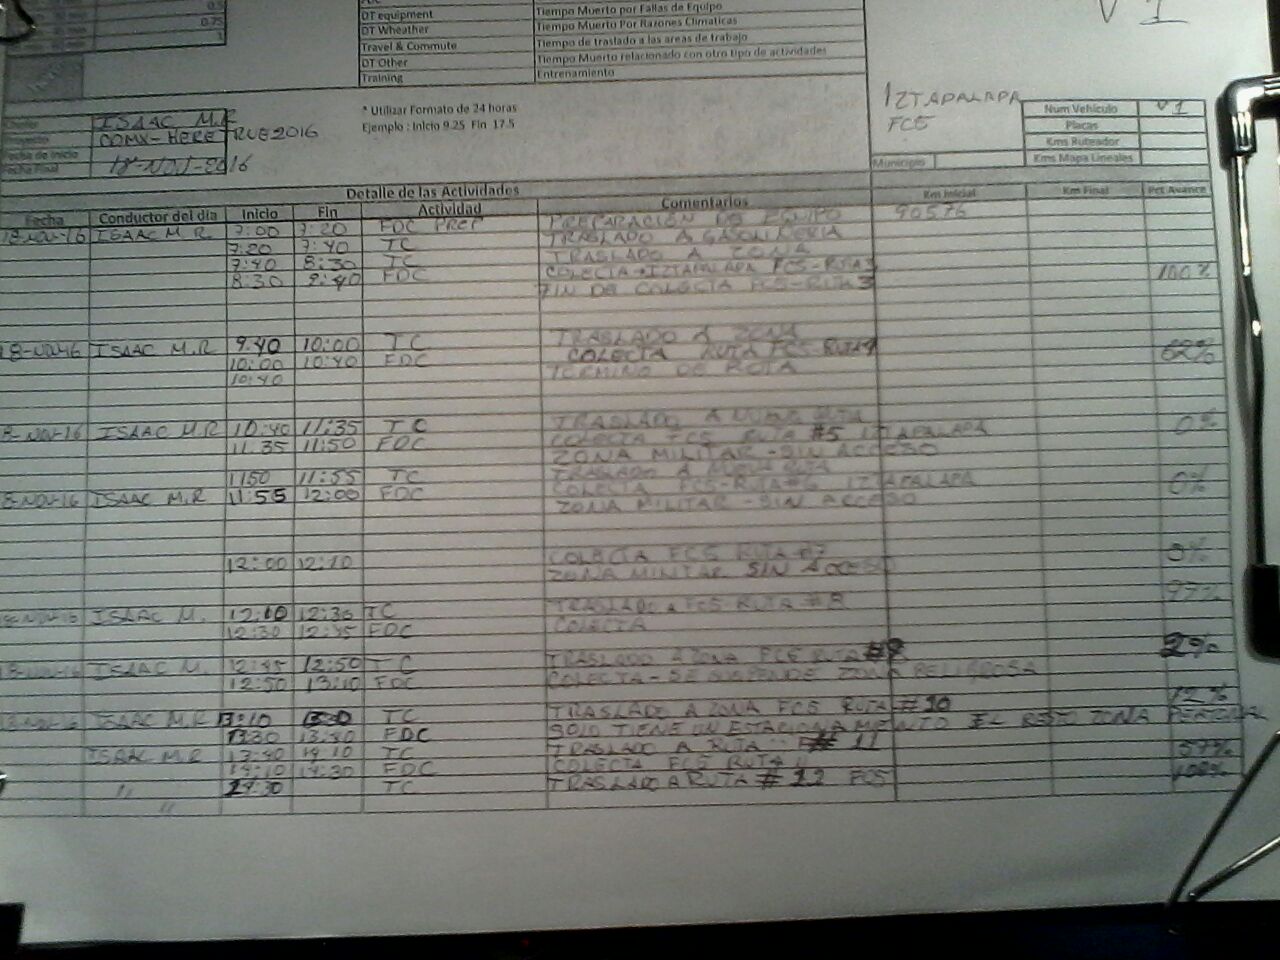 V 1
0.5
0.75
1
DT equipment Tiempo Muerto por Fallas de Equipo
DT Wheather Tiempo Muerto Por Razones Climaticas
Travel & Commute Tiempo de traslado a las areas de trabajo
DT Other Tiempo Muerto relacionado con otro tipo de actividades
Training Entrenamiento
* Utilizar Formato de 24 horas
Ejemplo : Inicio 9.25 Fin 17.5
IZTAPALAPA
FC5
Num Vehiculo V1
Placas
Kms Ruteador
Municipio Kms Mapa Lineales
ISAAC M.R
CDMX-HERE TRUE2016
Fecha de Inicio
Fecha Final 18-NOV-2016
Detalle de las Actividades
Fecha Conductor del dia Inicio Fin Actividad Comentarios Km Inicial Km Final Pct Avance
18-NOV-16 ISAAC M.R. 7:00 7:20 FDC PREP PREPARACIÓN DE EQUIPO 90576
7:20 7:40 TC TRASLADO A GASOLINERIA
7:40 8:30 TC TRASLADO A ZONA
8:30 9:40 FDC COLECTA IZTAPALAPA FC5-RUTA3 100%
FIN DE COLECTA FC5-RUTA3
18-NOV-16 ISAAC M.R 9:40 10:00 TC TRASLADO A ZONA
10:00 10:40 FDC COLECTA RUTA FC5 RUTA
10:40 TERMINO DE RUTA
8-NOV-16 ISAAC M.R 10:40 11:35 TC TRASLADO A RUTA 0%
11:35 11:50 FDC COLECTA FC5 RUTA #5 IZTAPALAPA
ZONA MILITAR - SIN ACCESO
1150 11:55 TC TRASLADO A NUEVA RUTA
8-NOV-16 ISAAC M.R 11:55 12:00 FDC COLECTA FC5-RUTA#6 IZTAPALAPA 0%
ZONA MILITAR - SIN ACCESO
12:00 12:10 COLECTA FC5 RUTA #7 0%
ZONA MILITAR SIN ACCESO
ISAAC M. 12:10 12:30 TC TRASLADO A FC5 RUTA #8 97%
12:30 12:45 FDC COLECTA
18-NOV-16 ISAAC M. 12:45 12:50 TC TRASLADO A ZONA FC5 RUTA 2%
12:50 13:10 FDC COLECTA - SE SUSPENDE ZONA PELIGROSA
18-NOV-16 ISAAC M.R 13:10 13:30 TC TRASLADO A ZONA FC5 RUTA #10 12%
13:30 13:40 FDC SOLO TIENE UN ESTACIONAMIENTO EL RESTO ZONA PEATONAL
ISAAC M.R 13:40 14:10 TC TRASLADO A RUTA # 11 57%
14:10 14:30 FDC COLECTA FC5 RUTA 11 100%
" 14:30 TC TRASLADO A RUTA # 12 FC5
"